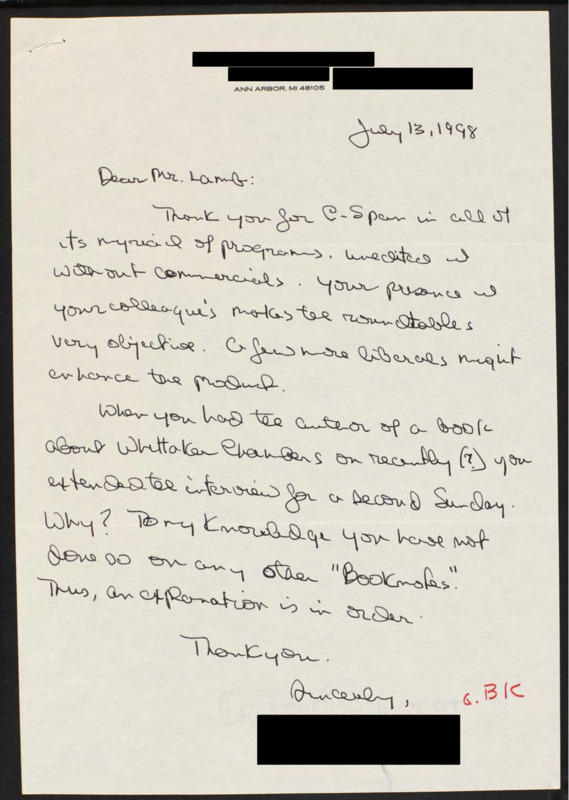 ANN ARBOR, MI 48105
July 13, 1998
Dear Mr. Lamb:
Thank you for C-Span in all of
its myriad of programs, unedited &
without commercials. Your presence &
your colleague's makes the roundtables
very objective. A few more liberals might
enhance the product.
When you had the author of a book
about Whittaker Chambers on recently (?) you
extended the interview for a second Sunday.
Why? To my knowledge you have not
done so on any other "Booknotes".
Thus, an explanation is in order.
Thank you.
Sincerely,
BK